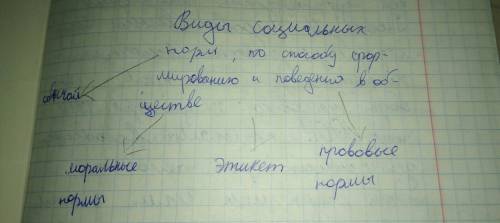 Виды социальных
норм, по способу фор-
мированию и поведению в об-
ществе
обычай
моральные
нормы
Этикет
правовые
нормы